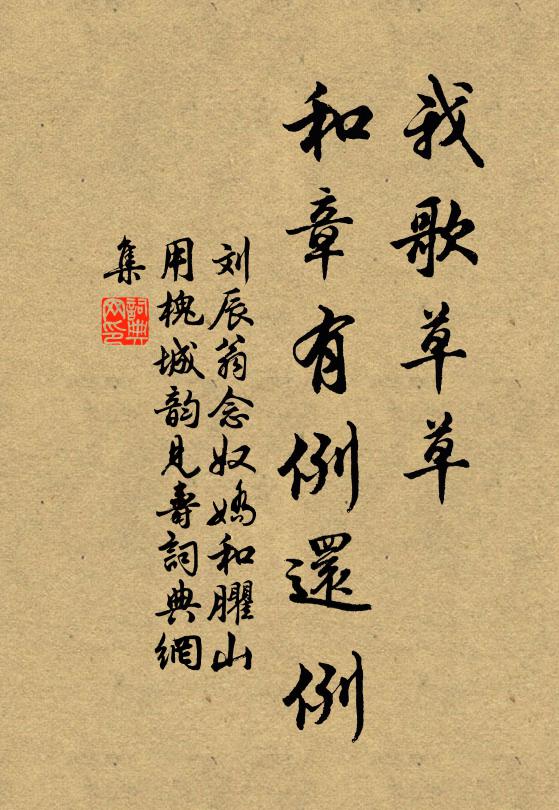 我歌草草
和章有例還例
刘辰翁念奴嬌和臞山
用槐城韵見壽詞典網
集
詞典
网印